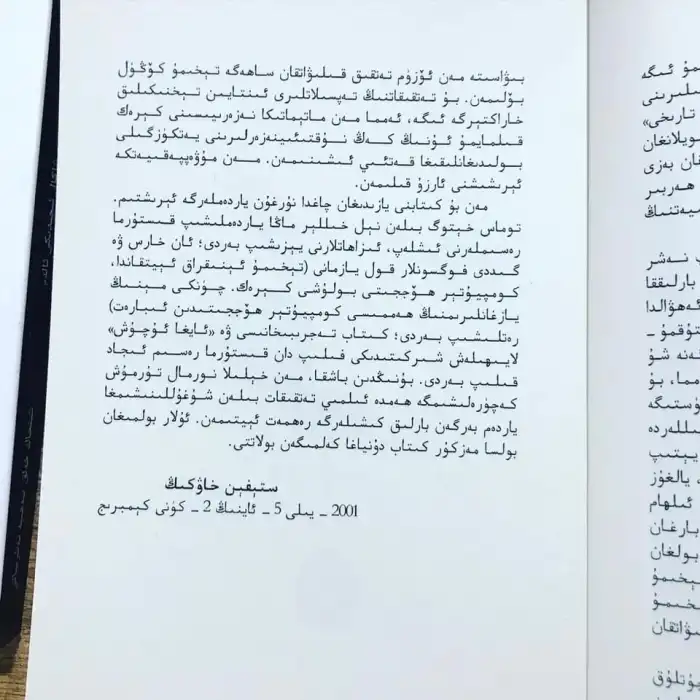 بىۋاسىتە مەن ئۆزۈم تەتقىق قىلىۋاتقان ساھەگە تېخىمۇ كۆڭۈل
بۆلىمەن. بۇ تەتقىقاتنىڭ تەپسىلاتلىرى ئىنتايىن تېخنىكىلىق
خاراكتېرگە ئىگە، ئەمما مەن ماتېماتىكا نەزەرىيىسىنى كېرەك
قىلمايمۇ ئۇنىڭ كەڭ نۇقتىئىينەزەرلىرىنى يەتكۈزگىلى
بولىدىغانلىقىغا قەتئىي ئىشىنىمەن. مەن مۇۋەپپەقىيەتكە
ئېرىشىشنى ئارزۇ قىلىمەن.
مەن بۇ كىتابنى يازىدىغان چاغدا نۇرغۇن ياردەملەرگە ئېرىشتىم.
توماس خېتوگ بىلەن نېل خىللېر ماڭا ياردەملىشىپ قىستۇرما
رەسىملەرنى ئىشلەپ، ئىزاھاتلارنى يېزىشىپ بەردى؛ ئان خارس ۋە
گىددى فوگسونلار قول يازمانى (تېخىمۇ ئېنىقراق ئېيتقاندا،
كومپيۇتېر ھۆججىتى بولۇشى كېرەك. چۈنكى مېنىڭ
يازغانلىرىمنىڭ ھەممىسى كومپيۇتېر ھۆججىتىدىن ئىبارەت)
رەتلىشىپ بەردى؛ كىتاب تەجرىبىخانىسى ۋە «ئايغا ئۇچۇش»
لايىھىلەش شىركىتىدىكى فىلىپ دان قىستۇرما رەسىم ئىجاد
قىلىپ بەردى. بۇنىڭدىن باشقا، مەن خېلىلا نورمال تۇرمۇش
كەچۈرەلىشىمگە ھەمدە ئىلمىي تەتقىقات بىلەن شۇغۇللىنىشىمغا
ياردەم بەرگەن بارلىق كىشىلەرگە رەھمەت ئېيتىمەن. ئۇلار بولمىغان
بولسا مەزكۇر كىتاب دۇنياغا كەلمىگەن بولاتتى.
ستېفېن خاۋكىڭ
2001 ـ يىلى 5 ـ ئاينىڭ 2 ـ كۈنى كېمبرىج
ئىگە
تارىخى»
بەزى
ھەربىر
نەشر
بارلىققا
شۇ
بۇ
يالغۇز
ئىلھام
بارغان
بولغان